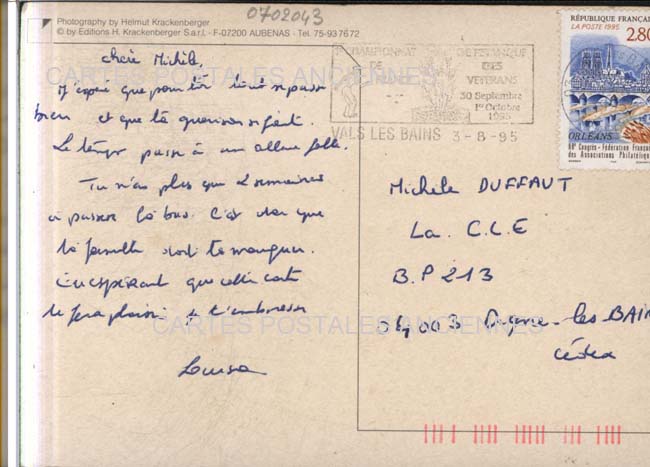 0702043
Photography by Helmut Krackenberger
© by Editions H. Krackenberger S.a.r.l. - F-07200 AUBENAS - Tel. 75-93 76 72
CARTES POSTALES ANCIENNES
Chère Michèle,
J'espère que pour toi tout se passe
bien et que ta
Le temps passe à un allure folle.
Tu n'as plus que 2 semaines
à passer là bas. C'est clair que
la famille doit te manquer.
En espérant que cette carte
te fera plaisir je t'embrasse
Louisa
CHAMPIONNAT DE PETANQUE
DE DES
VETERANS
30 Septembre
1er Octobre
1995
VALS LES BAINS 3-8-95
RÉPUBLIQUE FRANÇAISE
LA POSTE 1995 2,80
ORLÉANS
68e Congrès - Fédération Française
des Associations Philatéliques
Michèle DUFFAUT
La C.L.E
B.P 213
04003 Digne-les BAINS
Cédex
CARTES POSTALES ANCIENNES